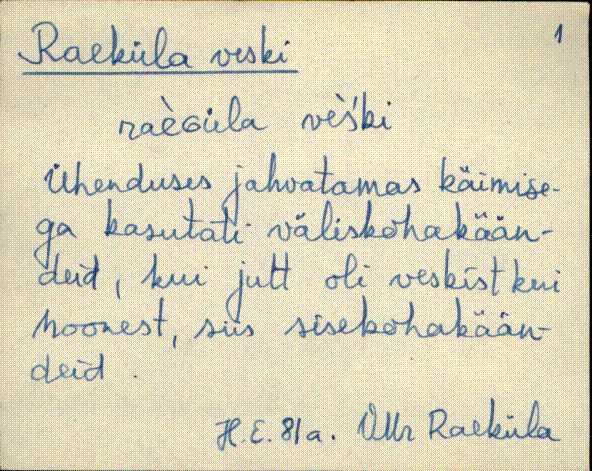 Raeküla veski 1
raèGüla vès̀ki
Ühenduses jahvatamas käimise-
ga kasutati väliskohakään-
deid, kui jutt oli veskist kui
hoonest, siis sisekohakään-
deid.
H.E. 81 a. Raeküla